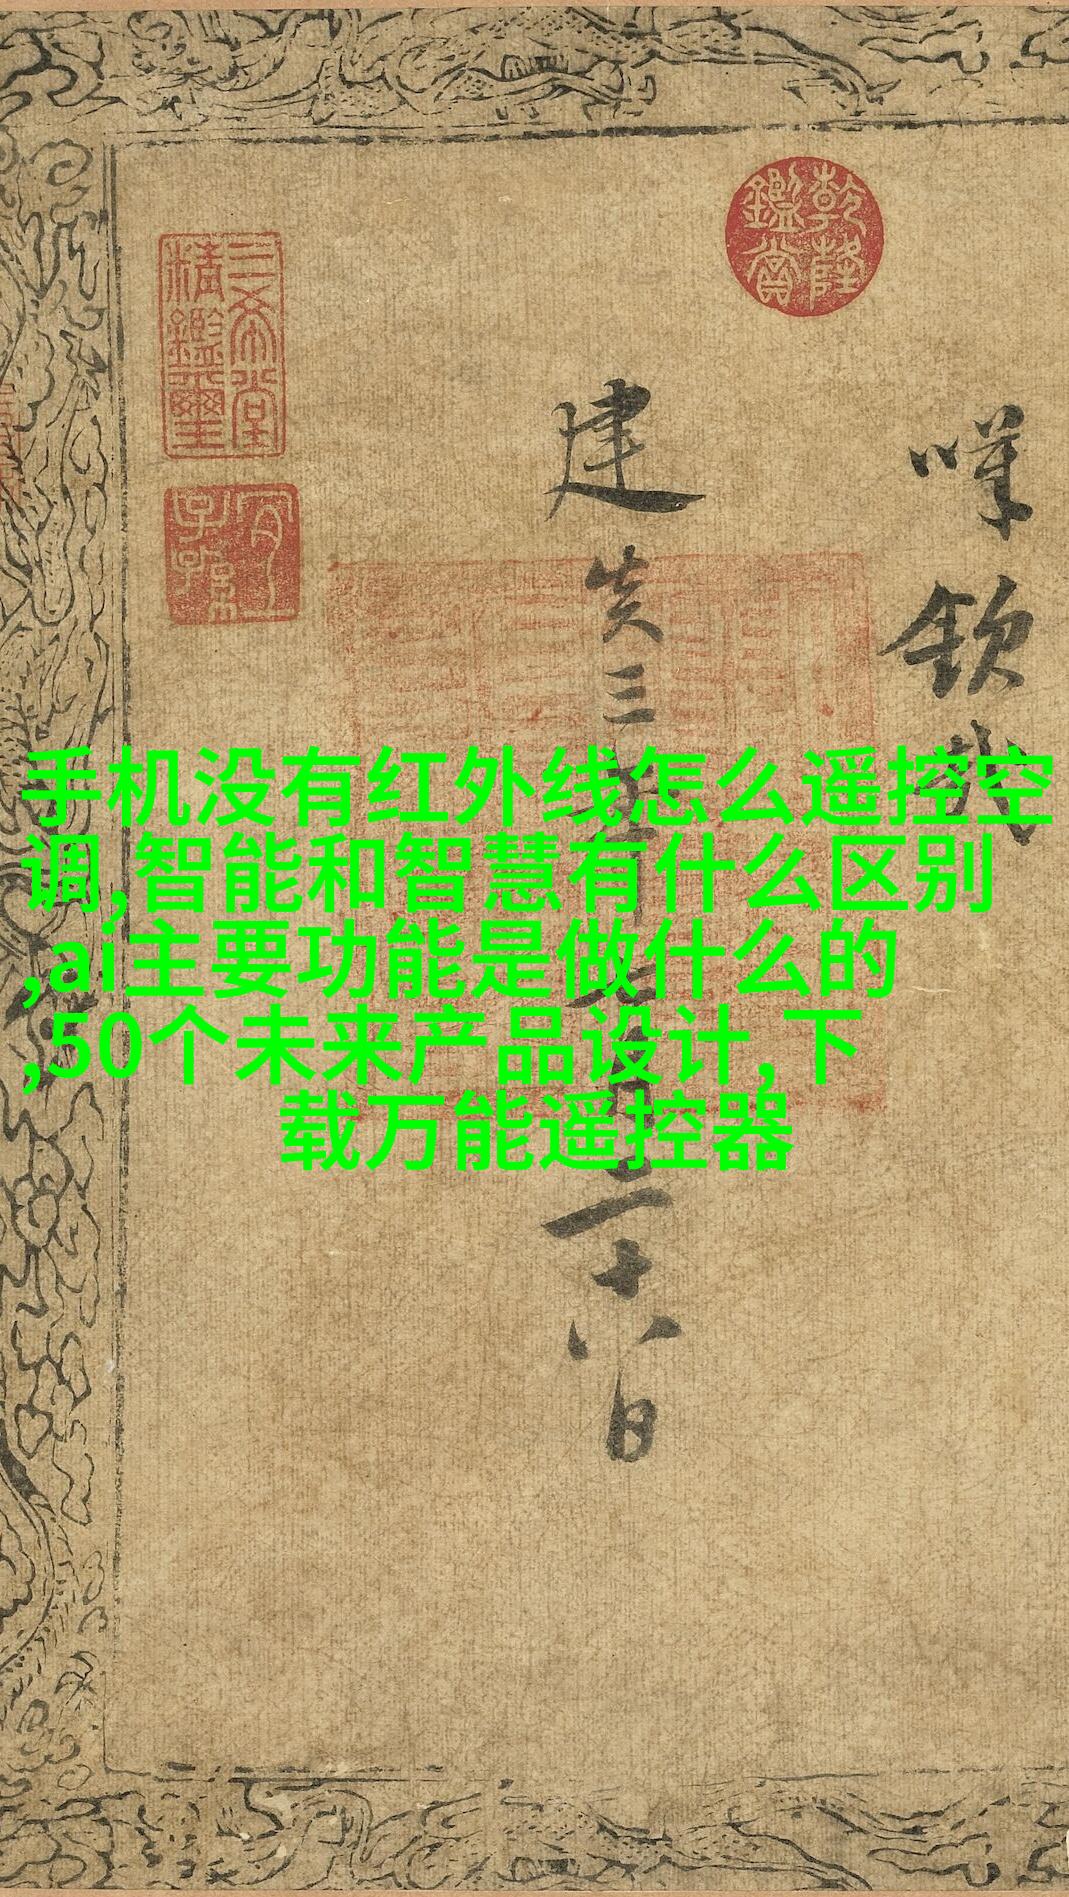 乾隆
鑑賞
三希堂
精鑑璽
宜
子孫
嘆欽哉
建炎三年七月二十八日
手机没有红外线怎么遥控空
调,智能和智慧有什么区别
,ai主要功能是做什么的
,50个未来产品设计,下
载万能遥控器